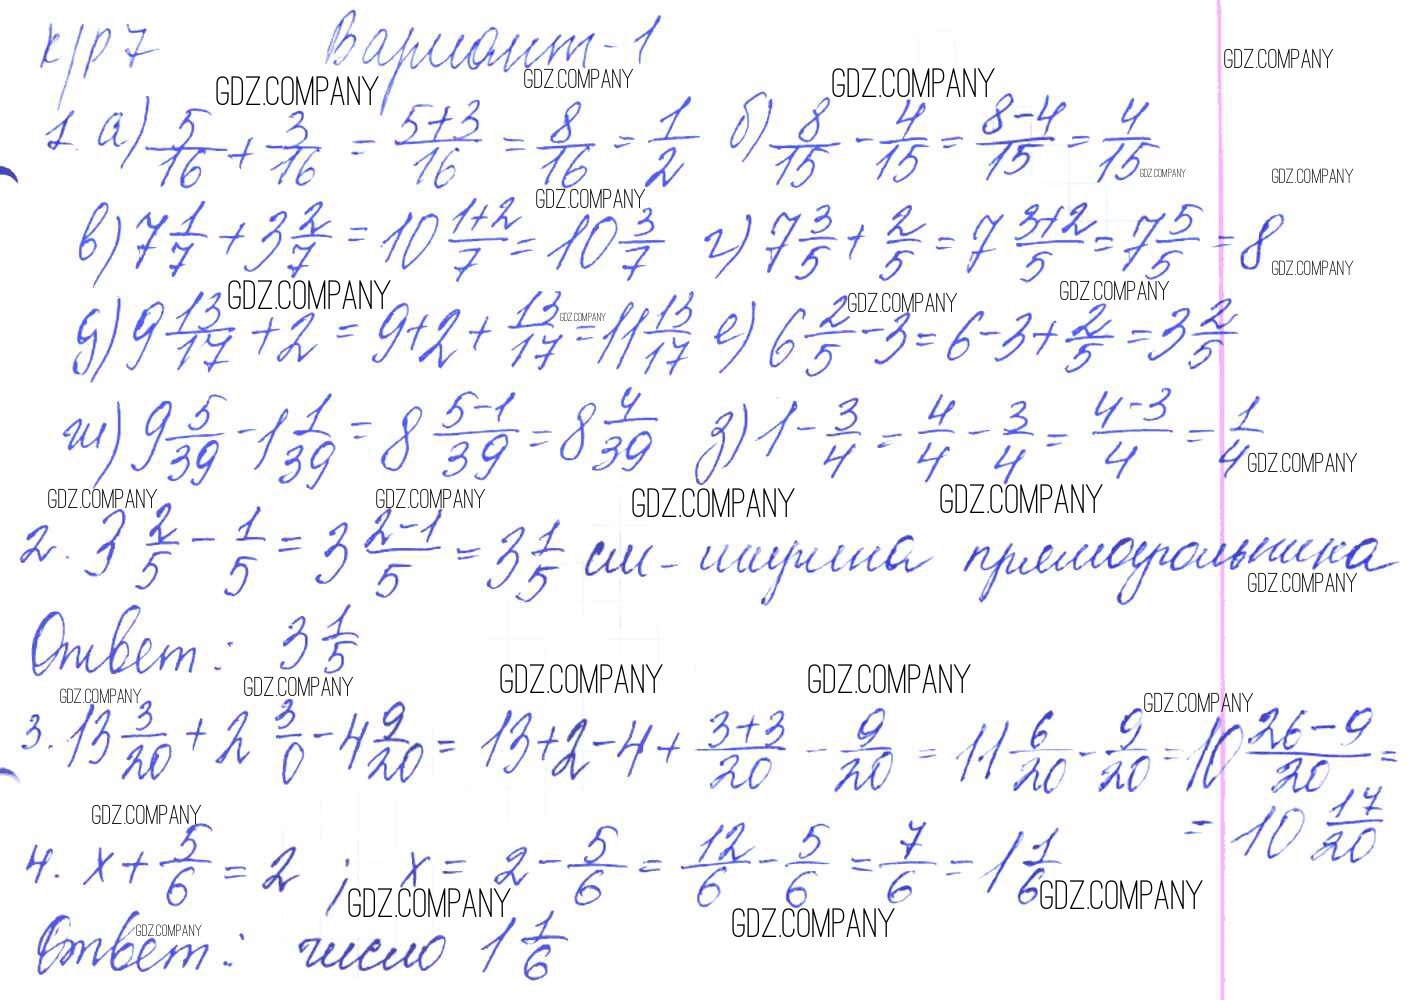 К/р 7 Вариант-1
GDZ.COMPANY GDZ.COMPANY GDZ.COMPANY GDZ.COMPANY
1. а) 5/16 + 3/16 = (5+3)/16 = 8/16 = 1/2 б) 8/15 - 4/15 = (8-4)/15 = 4/15
GDZ.COMPANY GDZ.COMPANY GDZ.COMPANY
в) 7 1/7 + 3 2/7 = 10 (1+2)/7 = 10 3/7 г) 7 3/5 + 2/5 = 7 (3+2)/5 = 7 5/5 = 8
GDZ.COMPANY GDZ.COMPANY GDZ.COMPANY GDZ.COMPANY GDZ.COMPANY
д) 9 13/17 + 2 = 9+2+ 13/17 = 11 13/17 е) 6 2/5 - 3 = 6-3+ 2/5 = 3 2/5
ж) 9 5/39 - 1 1/39 = 8 (5-1)/39 = 8 4/39 з) 1 - 3/4 = 4/4 - 3/4 = (4-3)/4 = 1/4
GDZ.COMPANY GDZ.COMPANY GDZ.COMPANY GDZ.COMPANY GDZ.COMPANY
2. 3 2/5 - 1/5 = 3 (2-1)/5 = 3 1/5 см - ширина прямоугольника
GDZ.COMPANY
Ответ: 3 1/5
GDZ.COMPANY GDZ.COMPANY GDZ.COMPANY GDZ.COMPANY GDZ.COMPANY
3. 13 3/20 + 2 3/0 - 4 9/20 = 13+2-4+ (3+3)/20 - 9/20 = 11 6/20 - 9/20 = 10 (26-9)/20 =
= 10 17/20
GDZ.COMPANY
4. x + 5/6 = 2 ; x = 2 - 5/6 = 12/6 - 5/6 = 7/6 = 1 1/6
GDZ.COMPANY GDZ.COMPANY GDZ.COMPANY GDZ.COMPANY
Ответ: число 1 1/6